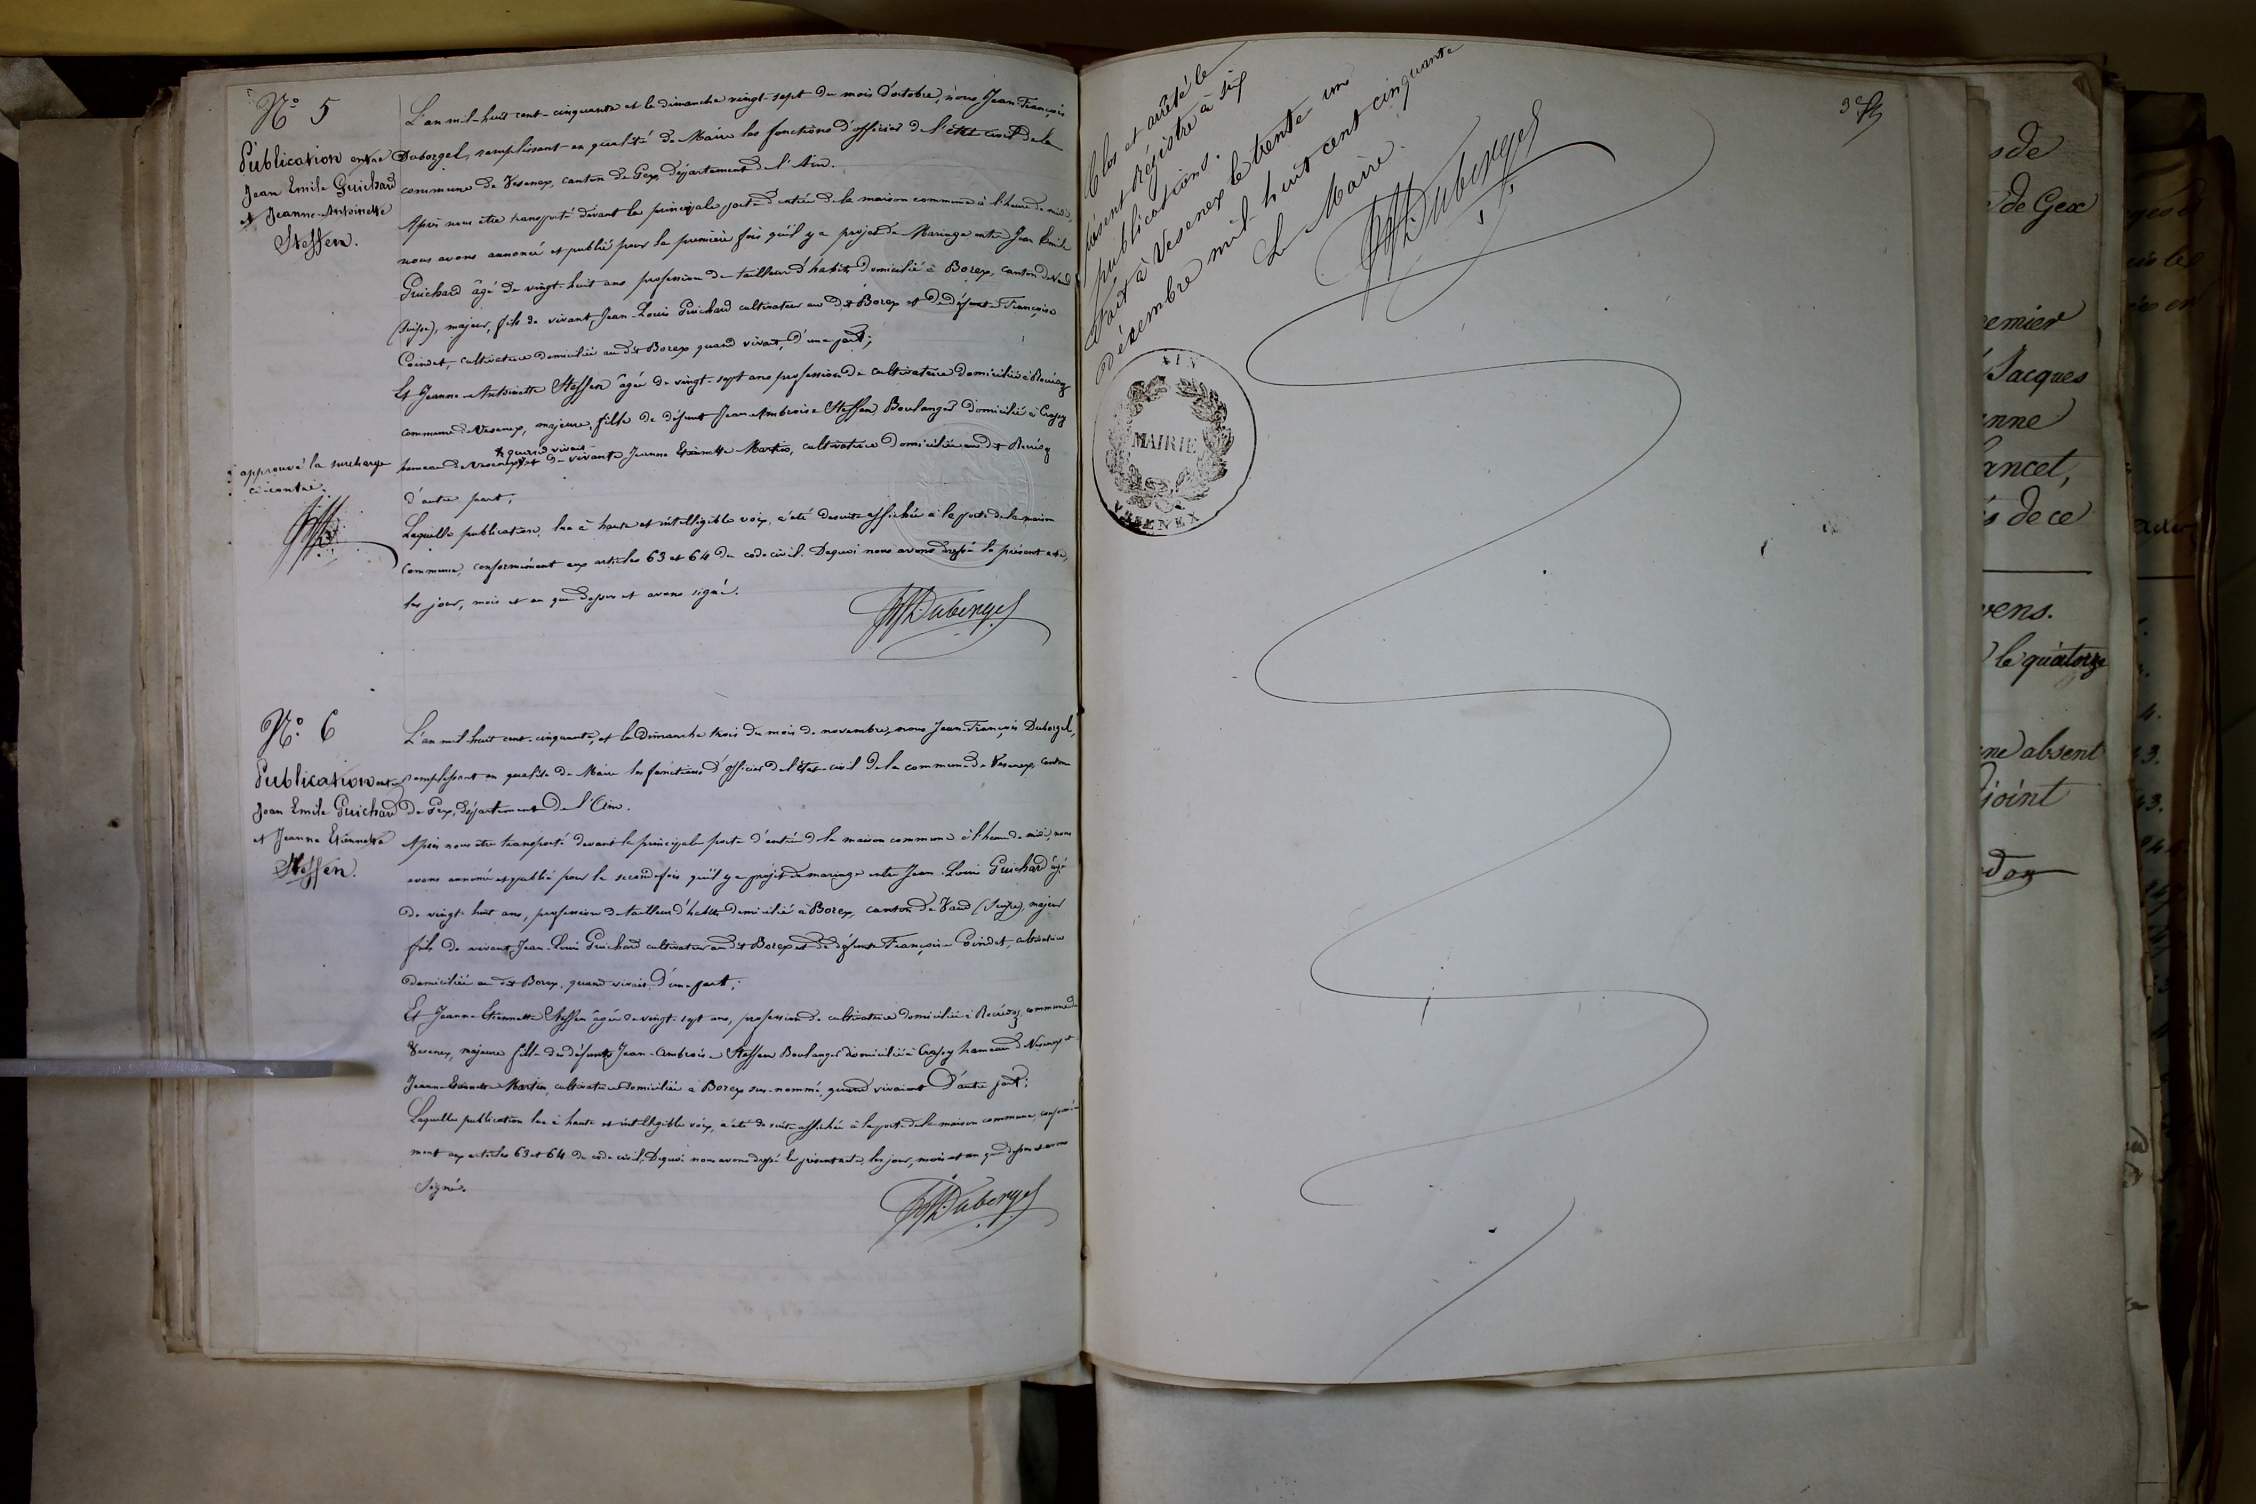 N.° 5
Publication entre
Jean Emile Guichard
et Jeanne-Antoinette
Steffen.
L'an mil-huit cent-cinquante et le dimanche vingt-sept du mois d'octobre, nous Jean François
Duborgel, remplissant en qualité de Maire les fonctions d'officier de l'état civil de la
commune de Vesenex, canton de Gex, département de l'Ain.
Après nous être transporté devant la principale porte d'entrée de la maison commune à l'heure de midi,
nous avons annoncé et publié pour la première fois qu'il y a projet de Mariage entre Jean Emile
Guichard âgé de vingt-huit ans profession de tailleur d'habits domicilié à Borex, canton de Vaud
(Suisse), majeur, fils de vivant Jean-Louis Guichard cultivateur au dit Borex et de défunte Françoise
Coindet, cultivatrice domiciliée au dit Borex quand vivait, d'une part;
Et Jeanne-Antoinette Steffen âgée de vingt-sept ans profession de cultivatrice domiciliée à
commune de Vesenex, majeure, fille de défunt Jean-Ambroise Steffen Boulanger domicilié à Crassy
quand vivait
hameau de Vesenex et de vivante Jeanne Etiennette Martin, cultivatrice domiciliée au dit
d'autre part;
approuvé la surcharge
ci-contre.
Laquelle publication, lue à haute et intelligible voix, a été de suite affichée à la porte de la maison
commune, conformément aux articles 63 et 64 du code civil. Dequoi nous avons dressé le présent acte,
les jour, mois et an que dessus et avons signé.
Duborgel
N.° 6
Publication entre
Jean Emile Guichard
et Jeanne Etiennette
Steffen.
L'an mil huit cent-cinquante, et le Dimanche trois du mois de novembre, nous Jean-François Duborgel,
remplissant en qualité de Maire les fonctions d'officier de l'état-civil de la commune de Vesenex, canton
de Gex, département de l'Ain.
Après nous être transporté devant la principale porte d'entrée de la maison commune à l'heure de midi, nous
avons annoncé et publié pour la seconde fois qu'il y a projet de mariage entre Jean-Louis Guichard âgé
de vingt-huit ans, profession de tailleur d'habits domicilié à Borex, canton de Vaud (Suisse), majeur
fils de vivant Jean-Louis Guichard cultivateur au dit Borex et de défunte Françoise Coindet, cultivatrice
domiciliée au dit Borex, quand vivait, d'une part;
Et Jeanne-Etiennette Steffen âgée de vingt-sept ans, profession de cultivatrice domiciliée à commune de
Vesenex, majeure fille des défunts Jean-Ambroise Steffen Boulanger domicilié à Crassy hameau de Vesenex et
Jeanne-Etiennette Martin, cultivatrice domiciliée à Borex sus-nommé, quand vivaient D'autre part;
Laquelle publication lue à haute et intelligible voix, a été de suite affichée à la porte de la maison commune, conformé-
ment aux articles 63 et 64 du code civil. Dequoi nous avons dressé le présent acte, les jour, mois et an que dessus et avons
signé.
Duborgel
Clos et arrêté le
présent régistre à six
publications.
Fait à Vesenex le trente un
décembre mil-huit cent cinquante
Le Maire.
Duborgel
AIN
MAIRIE
VESENEX
3
de Gex
Jacques
ancet,
de ce
le quatorze
absent